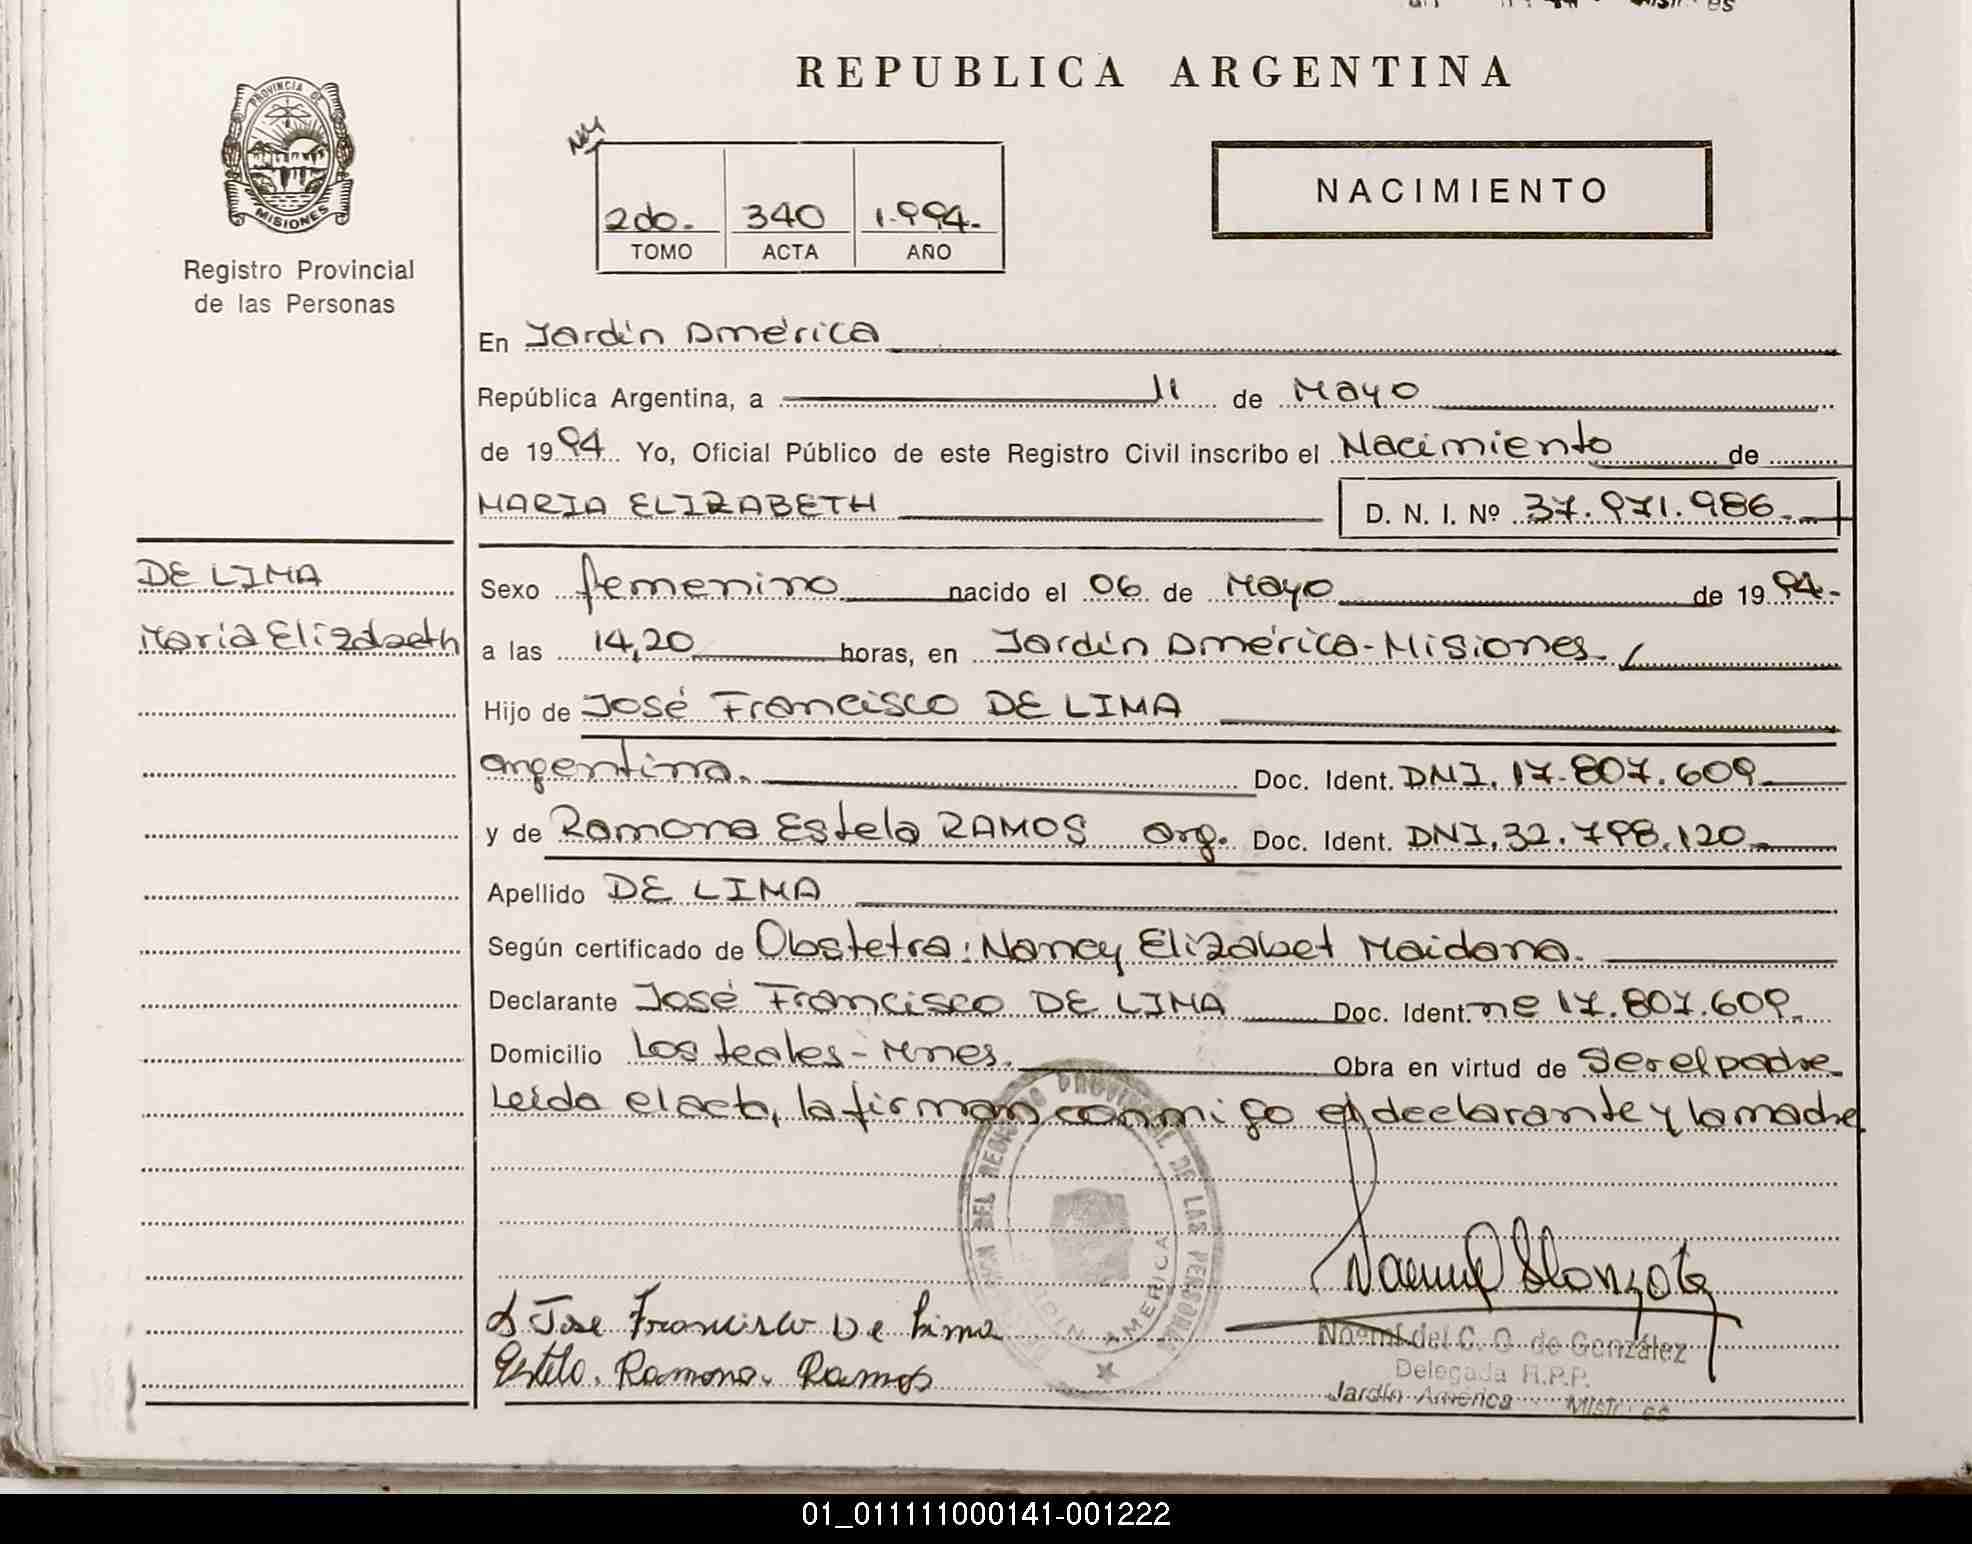 REPUBLICA ARGENTINA
PROVINCIA DE
MISIONES
Registro Provincial
de las Personas
2do. 340 1.994.
TOMO ACTA AÑO
NACIMIENTO
En Jardín América
República Argentina, a 11 de Mayo
de 1994 Yo, Oficial Público de este Registro Civil inscribo el Nacimiento de
MARIA ELIZABETH D. N. I. Nº 37.971.986.
DE LIMA
María Elizabeth
Sexo femenino nacido el 06 de Mayo de 1994.
a las 14,20 horas, en Jardín América-Misiones.
Hijo de José Francisco DE LIMA
argentina. Doc. Ident. DNI. 17.807.609.
y de Ramona Estela RAMOS arg. Doc. Ident. DNI. 32.798.120.
Apellido DE LIMA
Según certificado de Obstetra: Nancy Elizabet Maidana.
Declarante José Francisco DE LIMA Doc. Ident. nº 17.807.609.
Domicilio Los teales-Mnes. Obra en virtud de Ser el padre
Leída el acta, la firman conmigo el declarante y la madre
REGISTRO PROVINCIAL DE LAS PERSONAS
AMERICA
Jose Francisco De Lima
Estela. Ramona. Ramos
Noemí del C. O. de González
Delegada R.P.P.
Jardín América Misiones
01_011111000141-001222